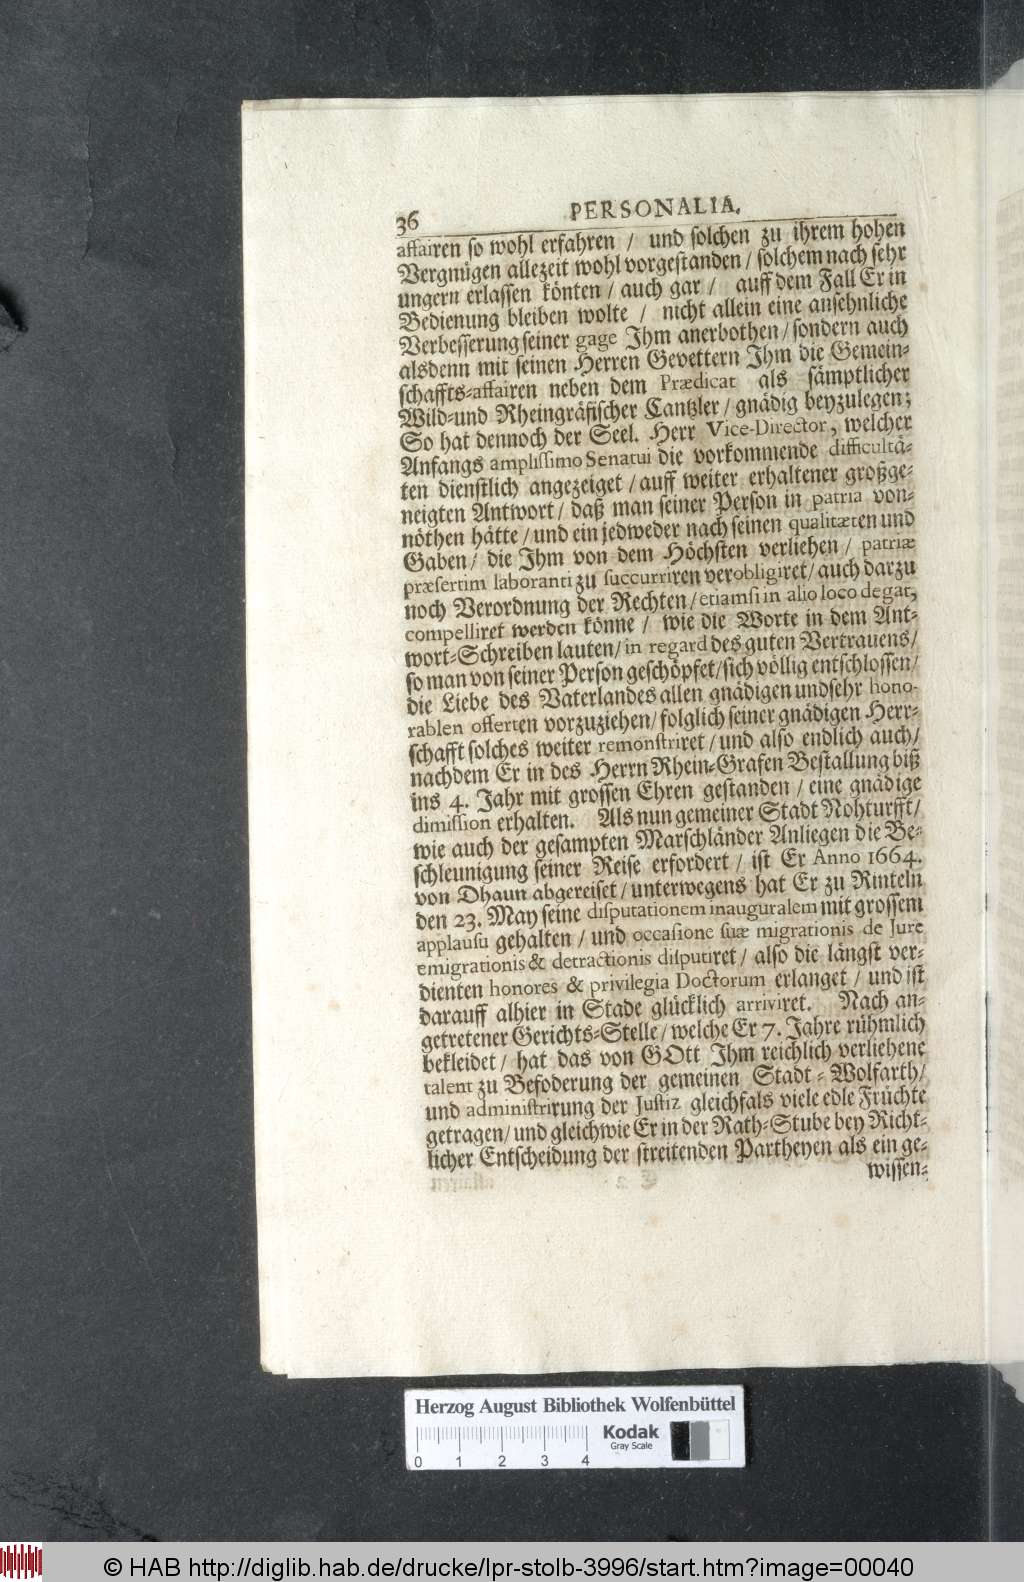 36
PERSONALIA.
affairen so wohl erfahren / und solchen zu ihrem hohen
Vergnügen allezeit wohl vorgestanden / solchem nach sehr
ungern erlassen könten / auch gar / auff dem Fall Er in
Bedienung bleiben wolte / nicht allein eine ansehnliche
Verbesserung seiner gage Ihm anerbothen / sondern auch
alsdenn mit seinen Herren Gevettern Ihm die Gemein-
schaffts-affairen neben dem Prædicat als sämptlicher
Wild-und Rheingräfischer Cantzler / gnädig beyzulegen;
So hat dennoch der Seel. Herr Vice-Director, welcher
Anfangs amplissimo Senatui die vorkommende difficultä-
ten dienstlich angezeiget / auff weiter erhaltener großge-
neigten Antwort / daß man seiner Person in patria von-
nöthen hätte / und ein jedweder nach seinen qualitæten und
Gaben / die Ihm von dem Höchsten verliehen / patriæ
præsertim laboranti zu succurriren verobligiret / auch darzu
noch Verordnung der Rechten / etiamsi in alio loco degat,
compelliret werden könne / wie die Worte in dem Ant-
wort-Schreiben lauten / in regard des guten Vertrauens /
so man von seiner Person geschöpfet / sich völlig entschlossen /
die Liebe des Vaterlandes allen gnädigen und sehr hono-
rablen offerten vorzuziehen / folglich seiner gnädigen Herr-
schafft solches weiter remonstriret / und also endlich auch /
nachdem Er in des Herrn Rhein-Grafen Bestallung biß
ins 4. Jahr mit grossen Ehren gestanden / eine gnädige
dimission erhalten. Als nun gemeiner Stadt Nohturfft /
wie auch der gesampten Marschländer Anliegen die Be-
schleunigung seiner Reise erfordert / ist Er Anno 1664.
von Dhaun abgereiset / unterwegens hat Er zu Rinteln
den 23. May seine disputationem inauguralem mit grossem
applausu gehalten / und occasione suæ migrationis de Jure
emigrationis & detractionis disputiret / also die längst ver-
dienten honores & privilegia Doctorum erlanget / und ist
darauff alhier in Stade glücklich arriviret. Nach an-
getretener Gerichts-Stelle / welche Er 7. Jahre rühmlich
bekleidet / hat das von GOtt Ihm reichlich verliehene
talent zu Befoderung der gemeinen Stadt-Wolfarth /
und administrirung der Justiz gleichfals viele edle Früchte
getragen / und gleichwie Er in der Rath-Stube bey Richt-
licher Entscheidung der streitenden Partheyen als ein ge-
wissen-
Herzog August Bibliothek Wolfenbüttel
Kodak
Gray Scale
0 1 2 3 4
© HAB http://diglib.hab.de/drucke/lpr-stolb-3996/start.htm?image=00040